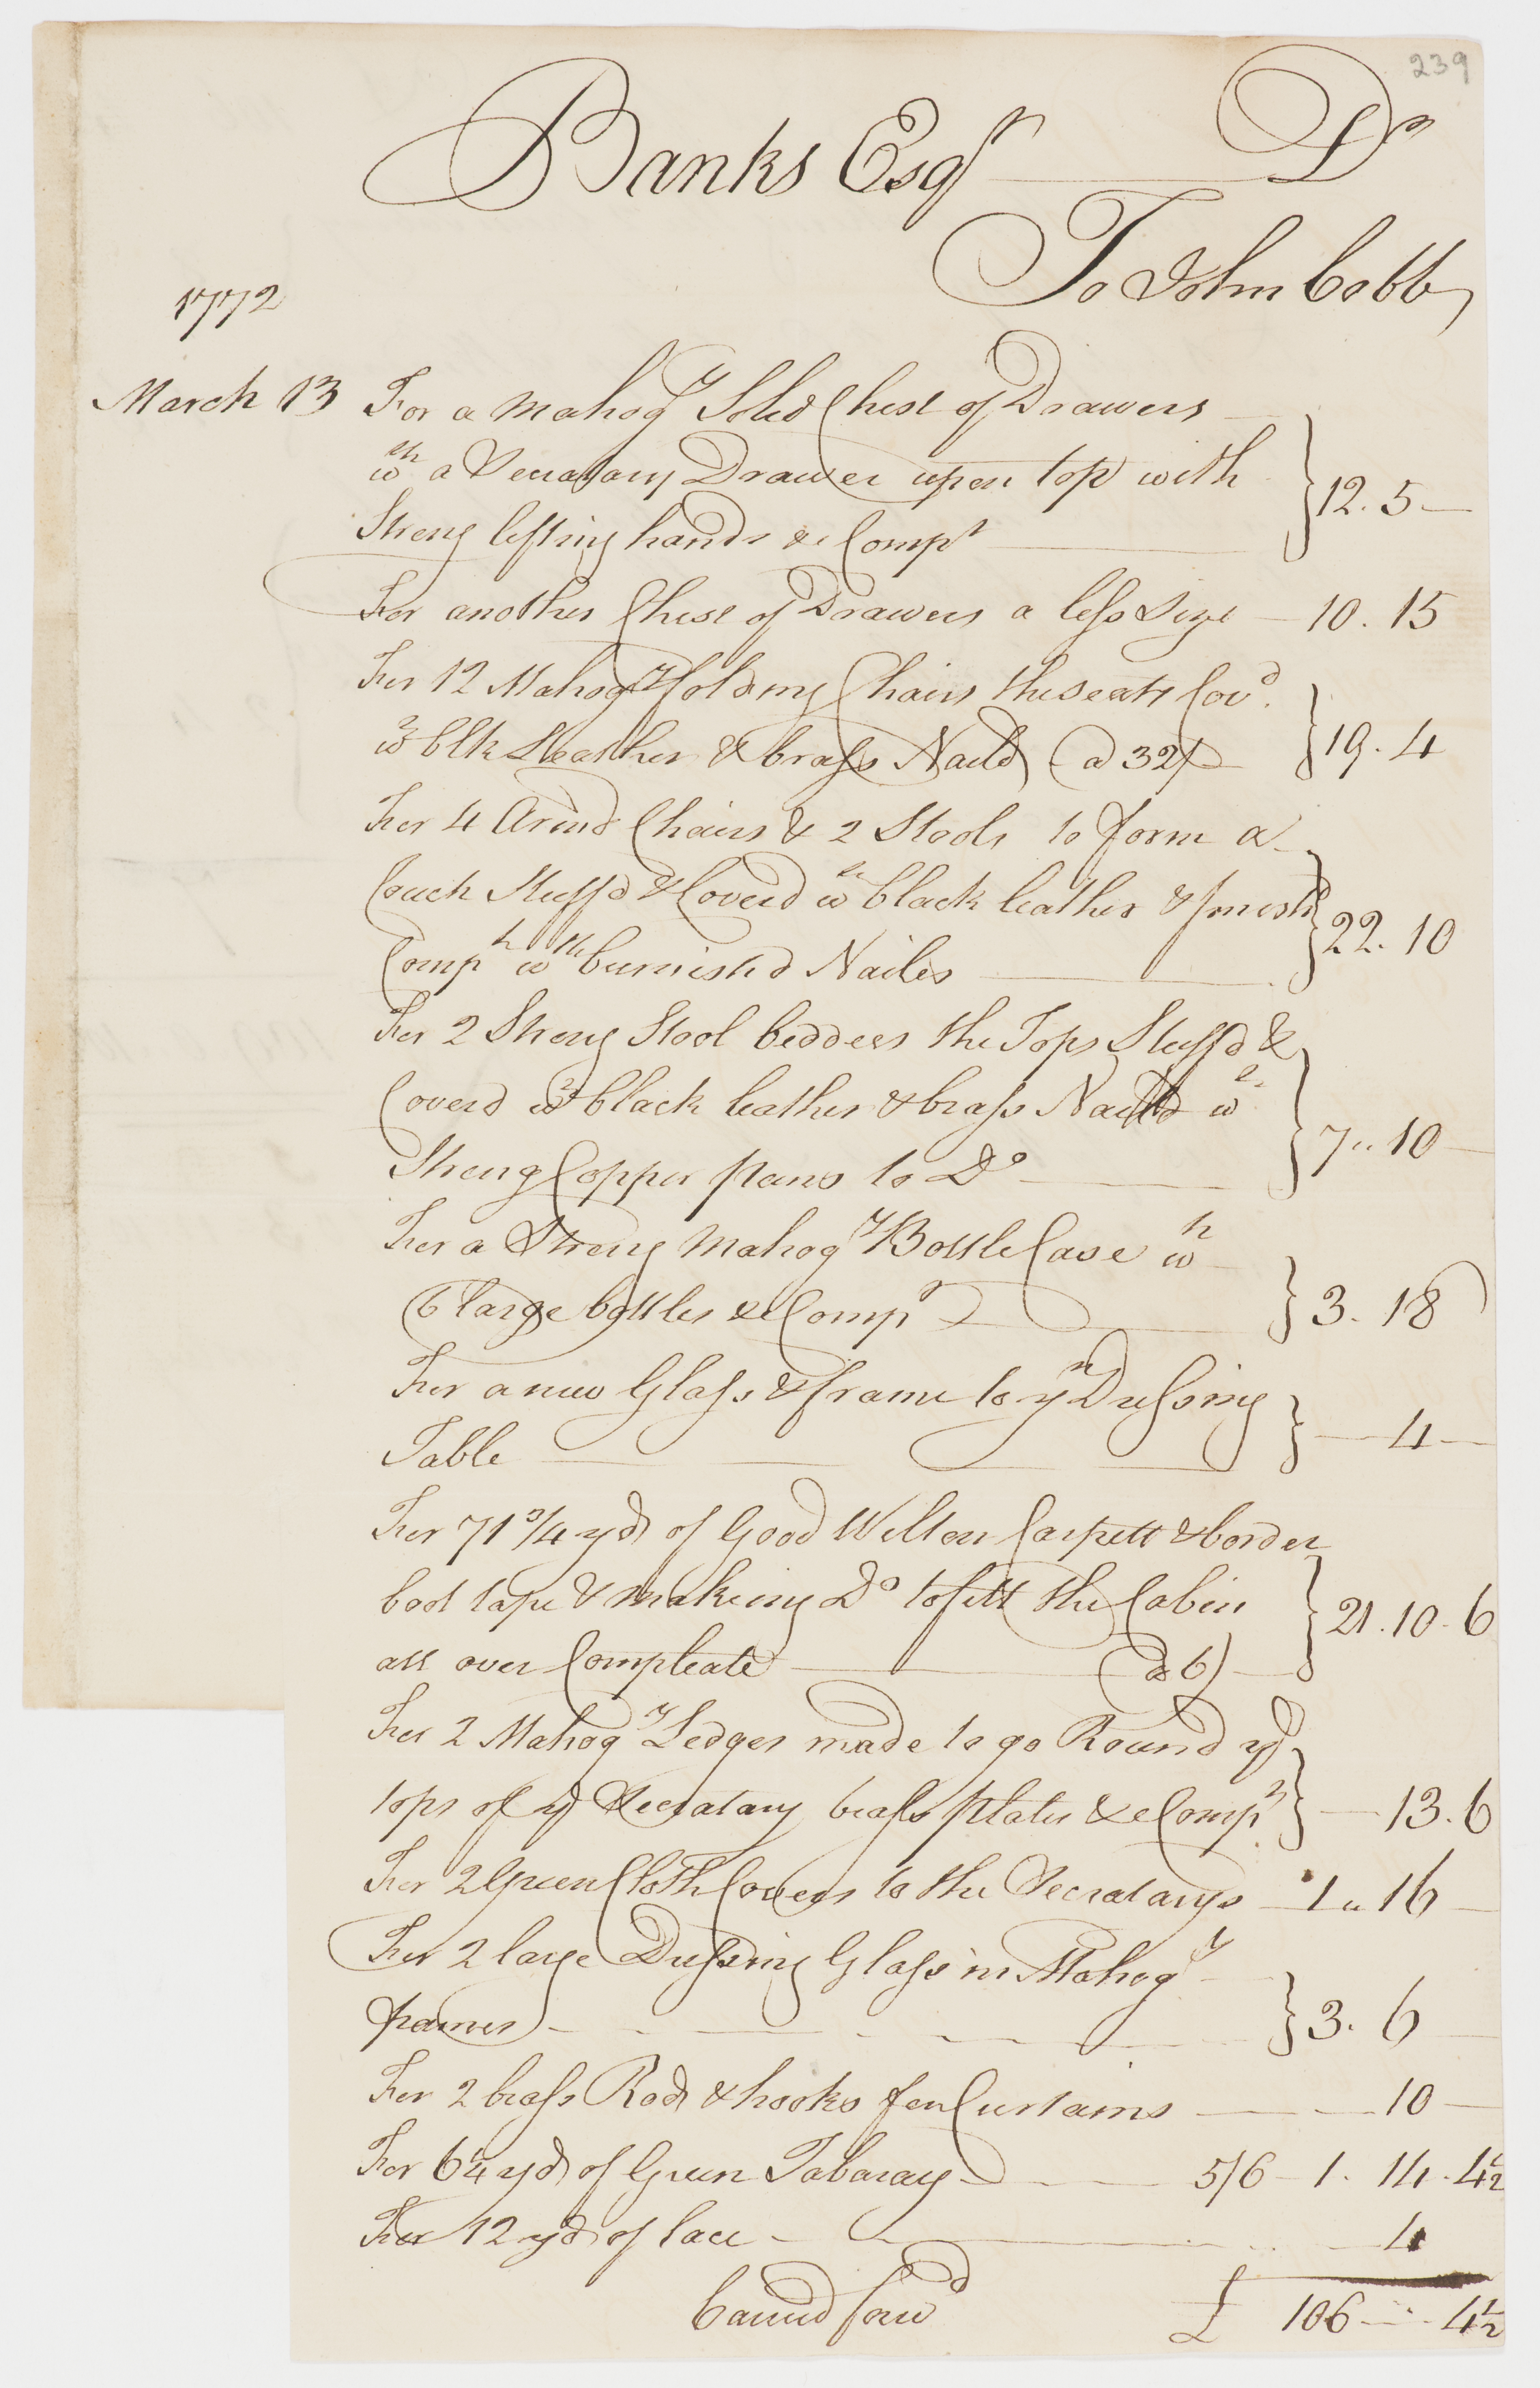 239
Banks Esqr Dr
To John Cobb
1772
March 13 For a Mahogy Solid Chest of Drawers
wth a Secratary Drawer upon top with
Strong lifting hands &c Compt } 12. 5 —
For another Chest of Drawers a less Size — 10. 15
For 12 Mahogy folding Chairs the seats Covd.
wh blk Leather & brass Naild @ 32/ } 19. 4
For 4 Armd Chairs & 2 Stools to form a
Couch Stuff'd & Coverd wh black leather & finishd
Compt wth burnish'd Nailes } 22. 10
For 2 Strong Stool beddees the Tops Stuff'd &
Coverd wh black leather & brass Naild wh
Strong Copper pans to Do } 7 „ 10 —
For a Strong Mahogy Bottle Case wh
6 large bottles &c Compt } 3. 18
For a new Glass & frame to yr Dressing
Table } — 4 —
For 71 3/4 yds of Good Wilton Carpett & border
bod tape & makeing Do to fitt the Cabin
all over Compleate @ 6/ } 21. 10. 6
For 2 Mahogy Ledges made to go Round ye
tops of ye Secratary brass plates &c Compt } — 13. 6
For 2 Green Cloth Covers to the Secratarys — 1 „ 16 —
For 2 large Dressing Glass in Mahogy
frames } 3. 6 —
For 2 brass Rods & hooks for Curtains — 10 —
For 6 1/4 yds of Green Tabaray — 5/6 — 1. 14. 4 1/2
For 12 yds of lace — 4
Carried forwd £ 106 — " — 4 1/2